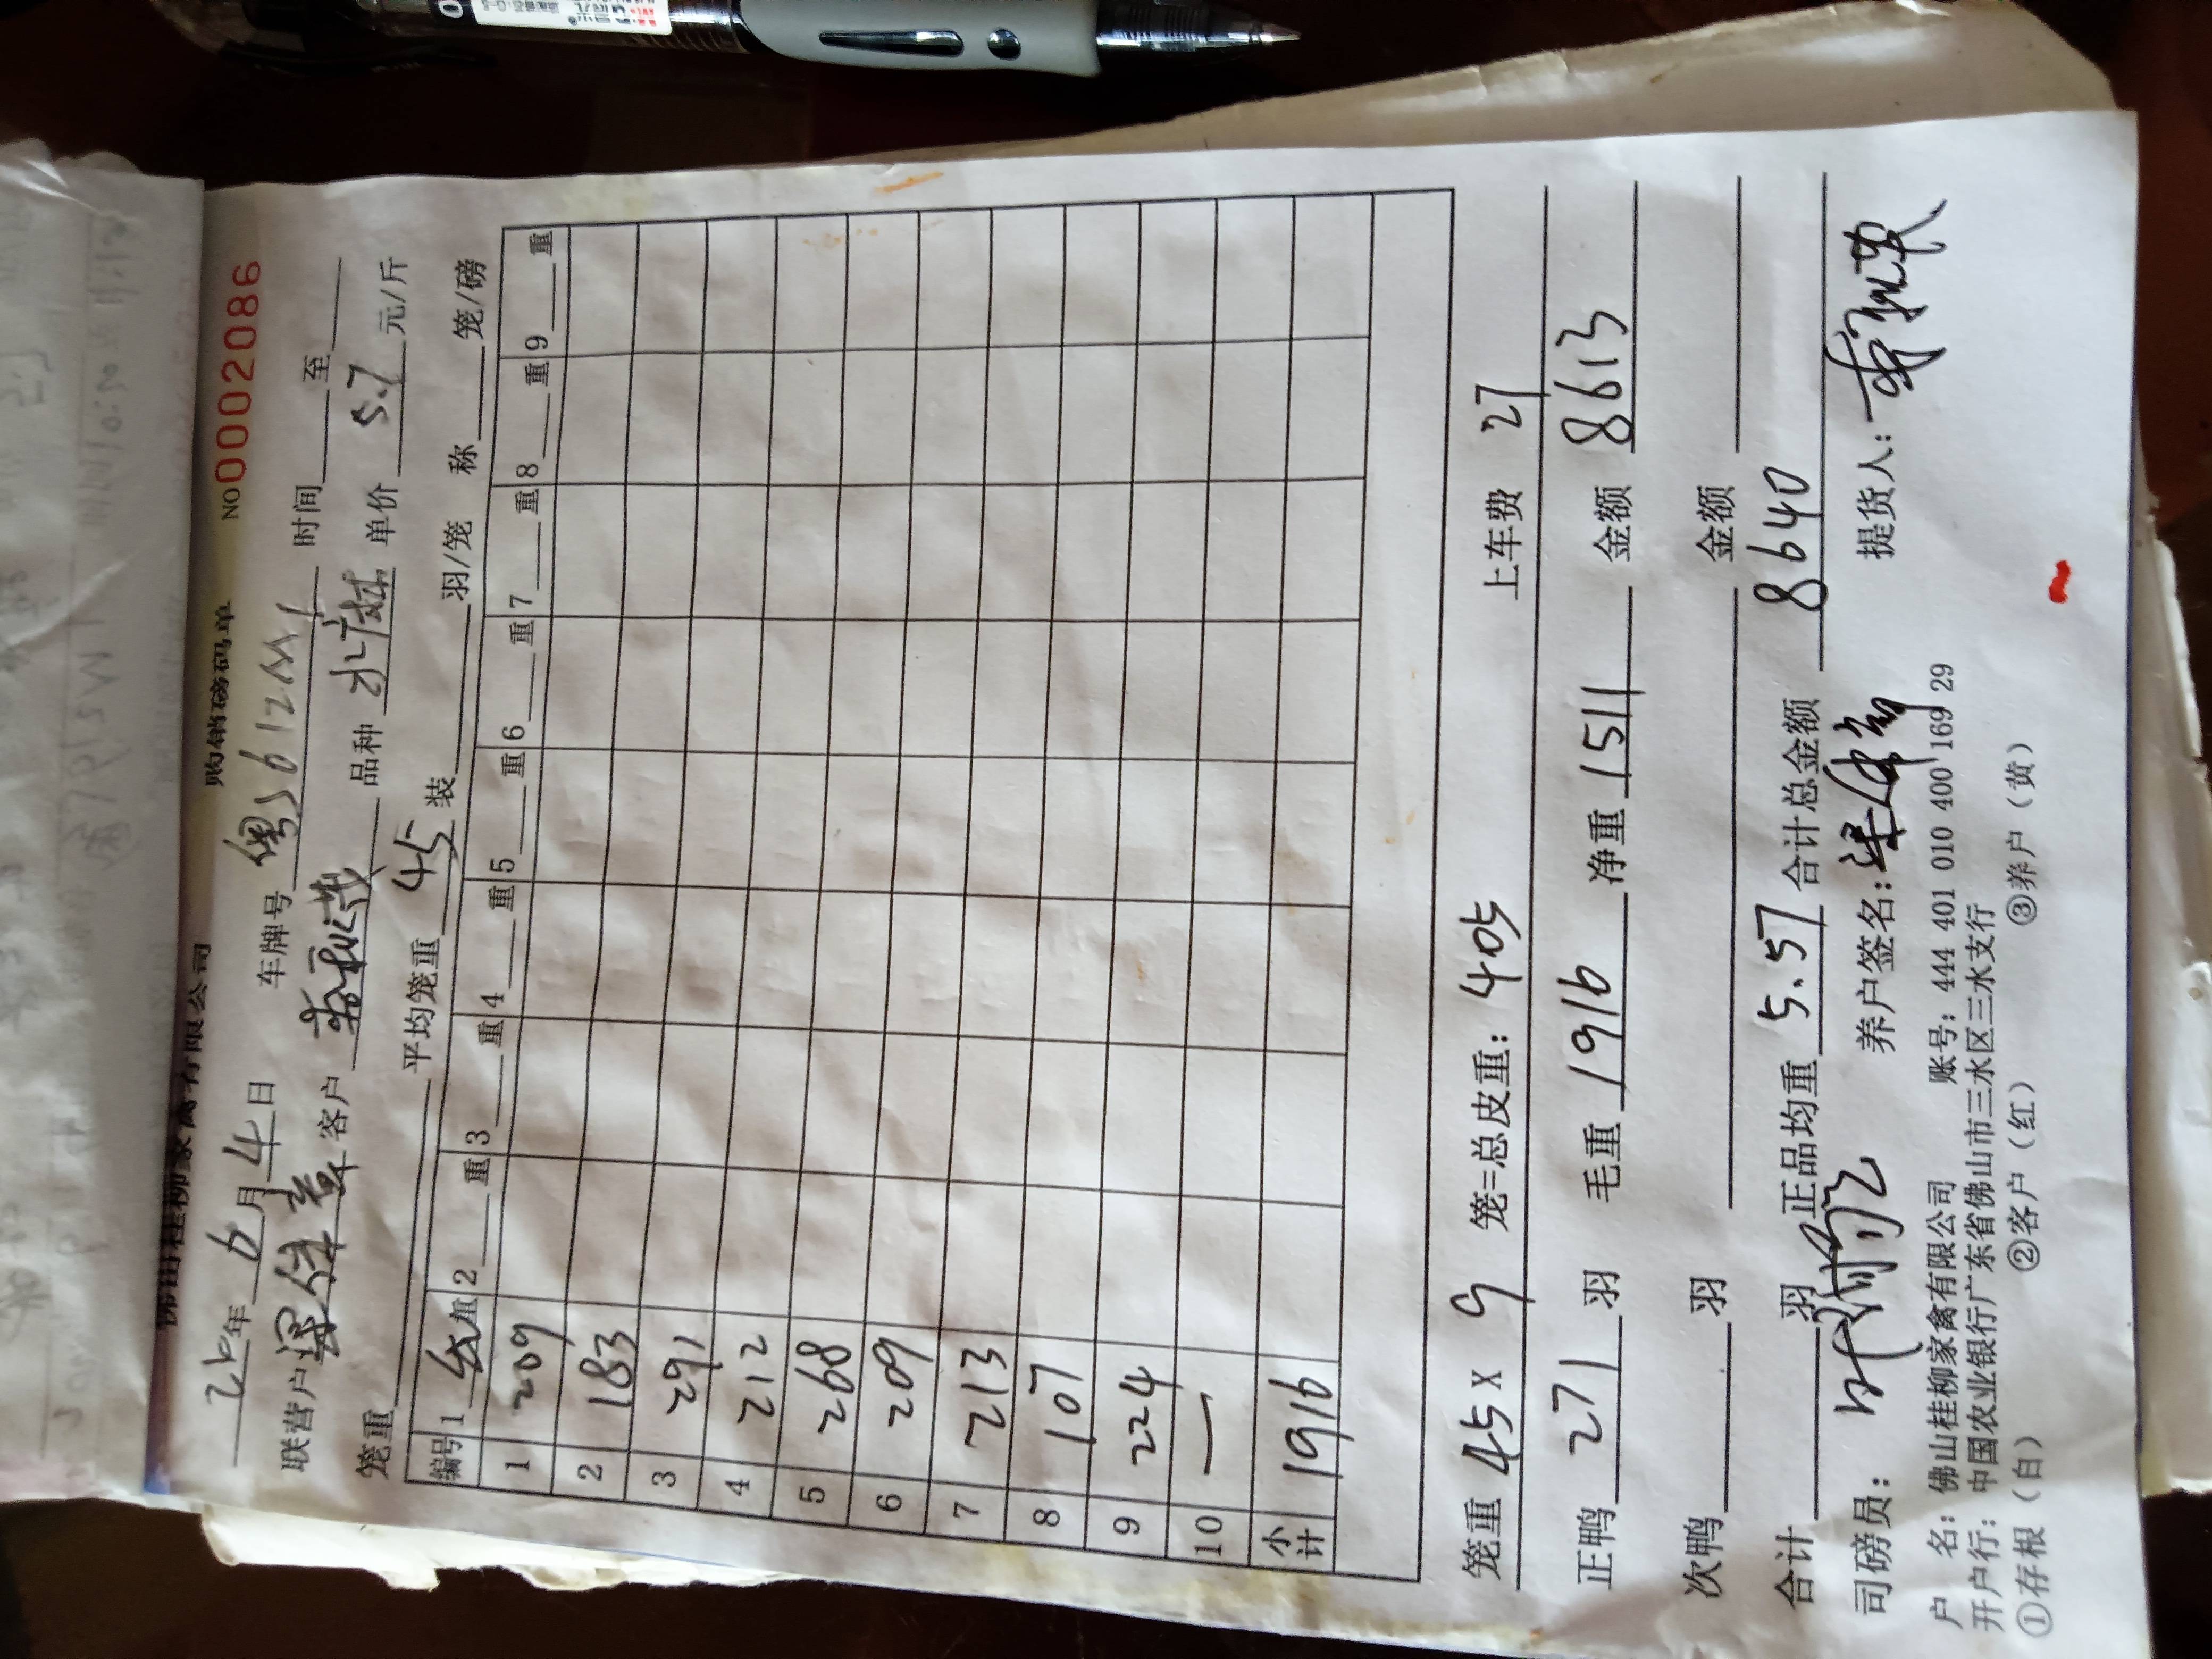 佛山桂柳家禽有限公司 购销磅码单 NO 0002086
年 6 月 4 日 车牌号 粤S612M 时间 至
联营户 客户 品种 单价 5.7 元/斤
笼重 平均笼重 45 装 羽/笼 称 笼/磅
编号 1 重 2 重 3 重 4 重 5 重 6 重 7 重 8 重 9 重
1 209
2 183
3 291
4 212
5 268
6 209
7 213
8 107
9 224
10 —
小计 1916
笼重 45 x 9 笼=总皮重: 405 上车费 27
正鸭 271 羽 毛重 1916 净重 1511 金额 8613
次鸭 羽 金额
合计 羽 正品均重 5.57 合计总金额 8640
司磅员: 养户签名: 提货人:
户 名: 佛山桂柳家禽有限公司 账号: 444 401 010 400 169 29
开户行: 中国农业银行广东省佛山市三水区三水支行
①存根（白） ②客户（红） ③养户（黄）